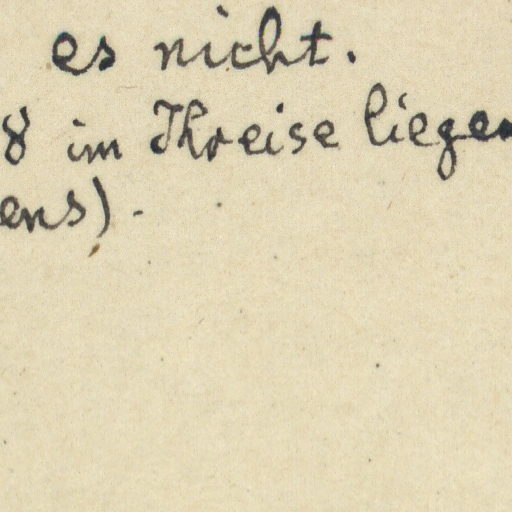 es nicht.
8 im Kreise liegen
ens).